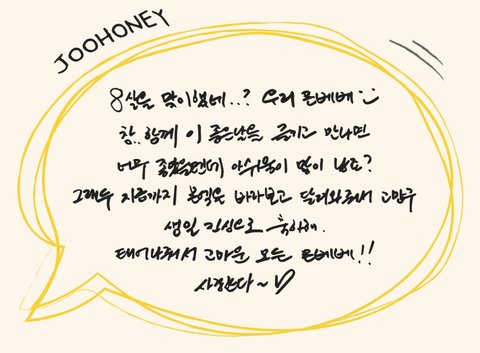 JOOHONEY
8살을 맞이했네..? 우리 몬베베 :)
참.. 함께 이 좋은날을 즐기고 만나면
너무 좋았을텐데 아쉬움이 많이 남죠?
그래두 지금까지 몬엑을 바라보고 달려와줘서 고맙구
생일 진심으로 축하해.
태어나줘서 고마운 모든 몬베베!!
사랑한다~♡